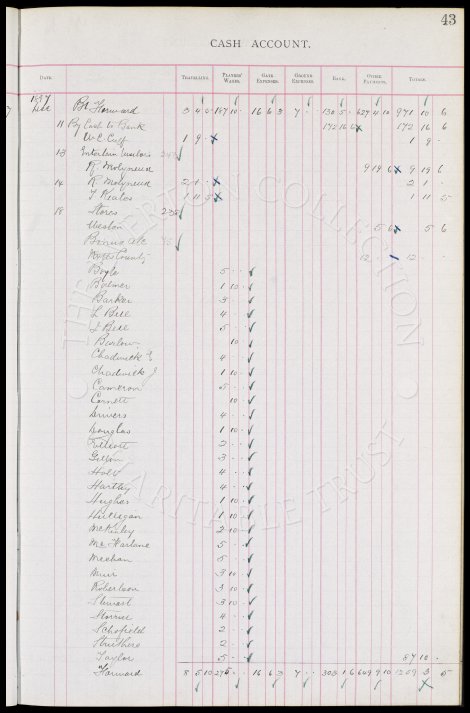 43
CASH ACCOUNT.
DATE. TRAVELLING. PLAYERS' WAGES. GATE EXPENSES. GROUND EXPENSES. BANK. OTHER PAYMENTS. TOTALS.
Dec Bt Forward 3 4 5 187 10 - 16 6 3 7 - - 130 5 - 627 4 10 971 10 6
11 By Cash to Bank 172 16 6 172 16 6
W. C. Cuff 1 9 - 1 9 -
13 Entertain Visitors
R. Molyneux 9 19 6 9 19 6
14 R. Molyneux 2 1 - 2 1 -
J Keates 1 11 5 1 11 5
18 Stores
Weston 5 6 5 6
Bonus a/c
Notts County 12 - - 12 - -
Boyle 5 - -
Balmer 1 10 -
Barker 3 - -
L Bell 4 - -
J Bell 5 - -
Barlow 10 -
Chadwick E 4 - -
Chadwick J 1 10 -
Cameron 5 - -
Cornett 10 -
Divers 4 - -
Douglas 1 10 -
Elliott 2 - -
Gillon 3 - -
Holt 4 - -
Hartley 4 - -
Hughes 1 10 -
1 10 -
McKinley 2 10 -
McFarlane 5 - -
Meehan 5 - -
Muir 3 10 -
Robertson 3 10 -
Stewart 3 10 -
Storrier 4 - -
Schofield 2 - -
Struthers 2 - -
Taylor 5 - - 87 10 -
Forward 8 5 10 275 - - 16 6 3 7 - - 303 1 6 649 9 10 1259 3 5
THE EVERTON COLLECTION
CHARITABLE TRUST